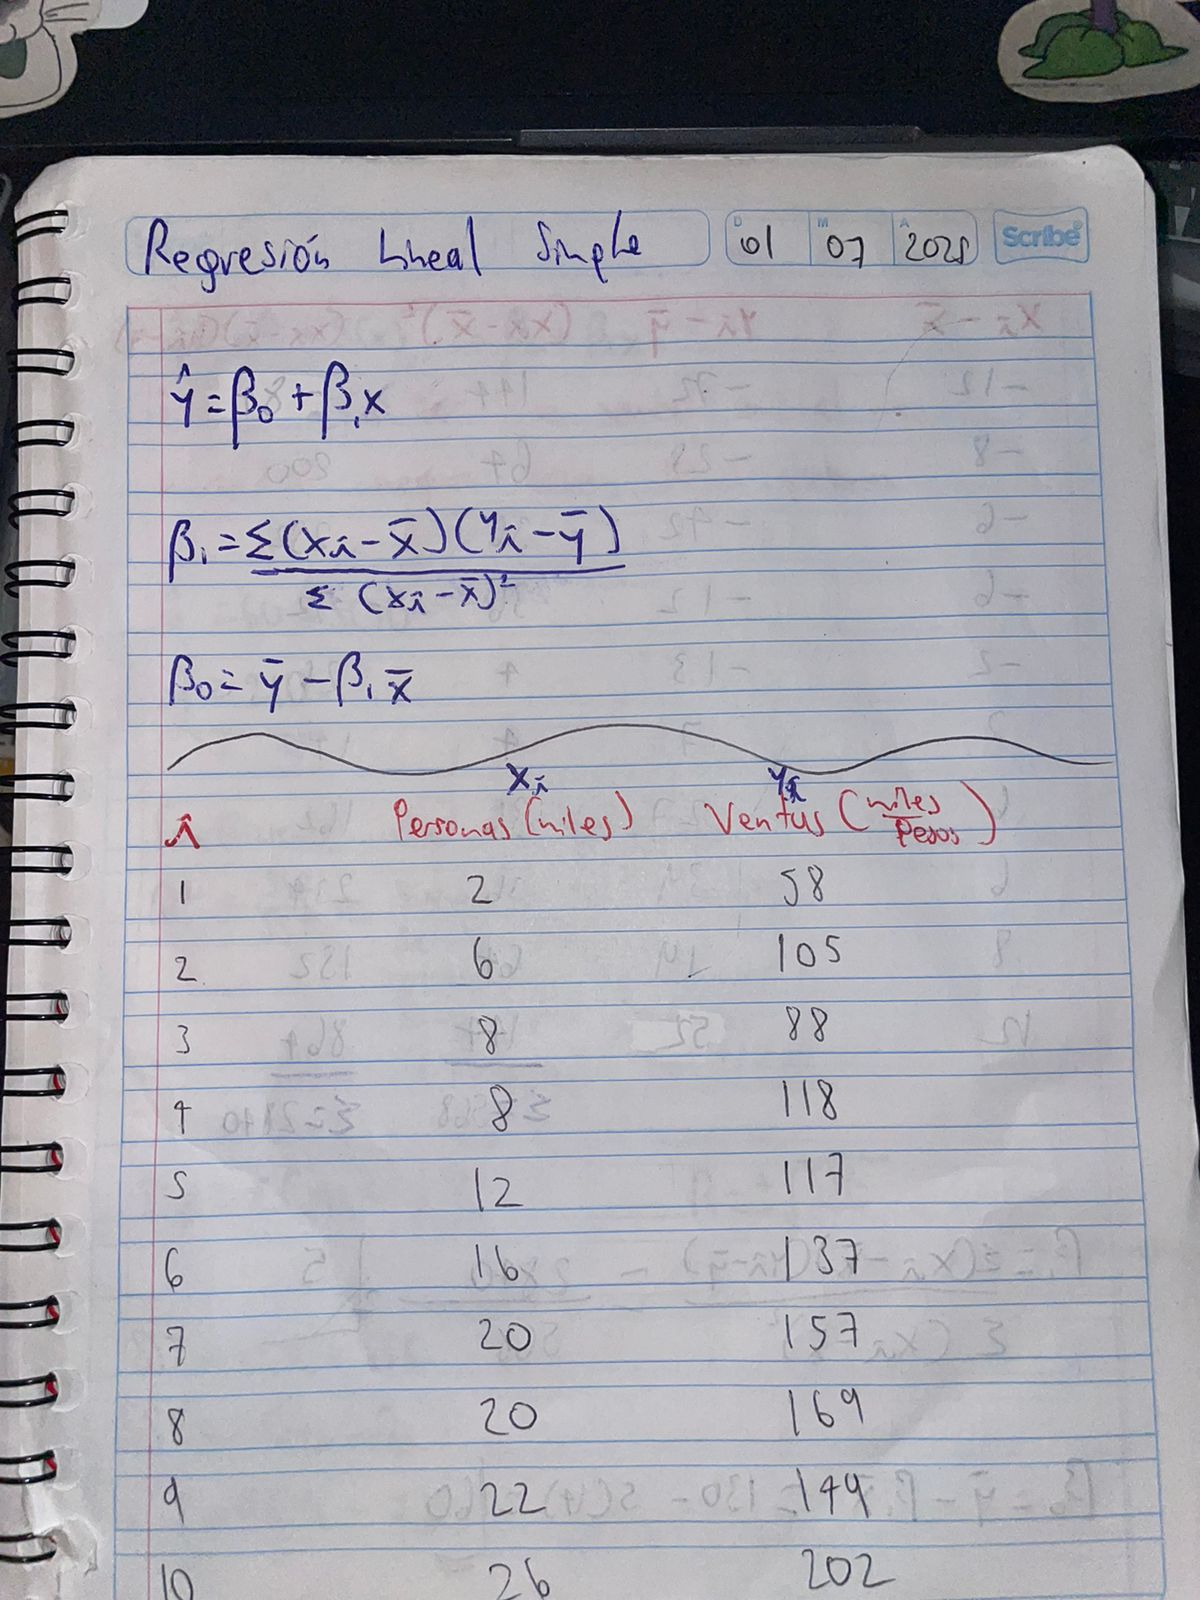 Regresión Lineal Simple
D 01 M 07 A 2025 Scribe
ŷ = β₀ + β₁x
β₁ = Σ(xi - x̄)(yi - ȳ)
Σ (xi - x̄)²
β₀ = ȳ - β₁ x̄
xi yi
i Personas (miles) Ventas (miles
Pesos)
1 2 58
2 6 105
3 8 88
4 8 118
5 12 117
6 16 137
7 20 157
8 20 169
9 22 149
10 26 202